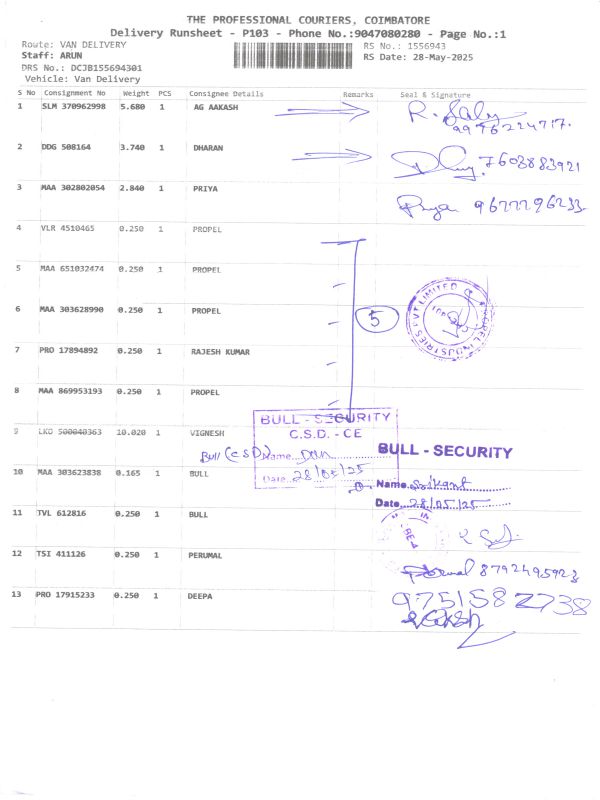 THE PROFESSIONAL COURIERS, COIMBATORE
Delivery Runsheet - P103 - Phone No.:9047080280 - Page No.:1
Route: VAN DELIVERY RS No.: 1556943
Staff: ARUN RS Date: 28-May-2025
DRS No.: DCJB155694301
Vehicle: Van Delivery
S No Consignment No Weight PCS Consignee Details Remarks Seal & Signature
1 SLM 370962998 5.680 1 AG AAKASH
9976224717.
2 DDG 508164 3.740 1 DHARAN 7603883921
3 MAA 302802054 2.840 1 PRIYA Priya 9677796233
4 VLR 4510465 0.250 1 PROPEL
5 MAA 651032474 0.250 1 PROPEL
6 MAA 303628990 0.250 1 PROPEL 5 PROPEL INDUSTRIES PVT LIMITED
7 PRO 17894892 0.250 1 RAJESH KUMAR
8 MAA 869953193 0.250 1 PROPEL
BULL - SECURITY
9 LKO 500040363 10.020 1 VIGNESH C.S.D. - CE
Bull (CSD) Name BULL - SECURITY
10 MAA 303623838 0.165 1 BULL Date 28/05/25 Name Srikant
Date 28/05/25
11 TVL 612816 0.250 1 BULL
12 TSI 411126 0.250 1 PERUMAL
8792495923
13 PRO 17915233 0.250 1 DEEPA 9751582738